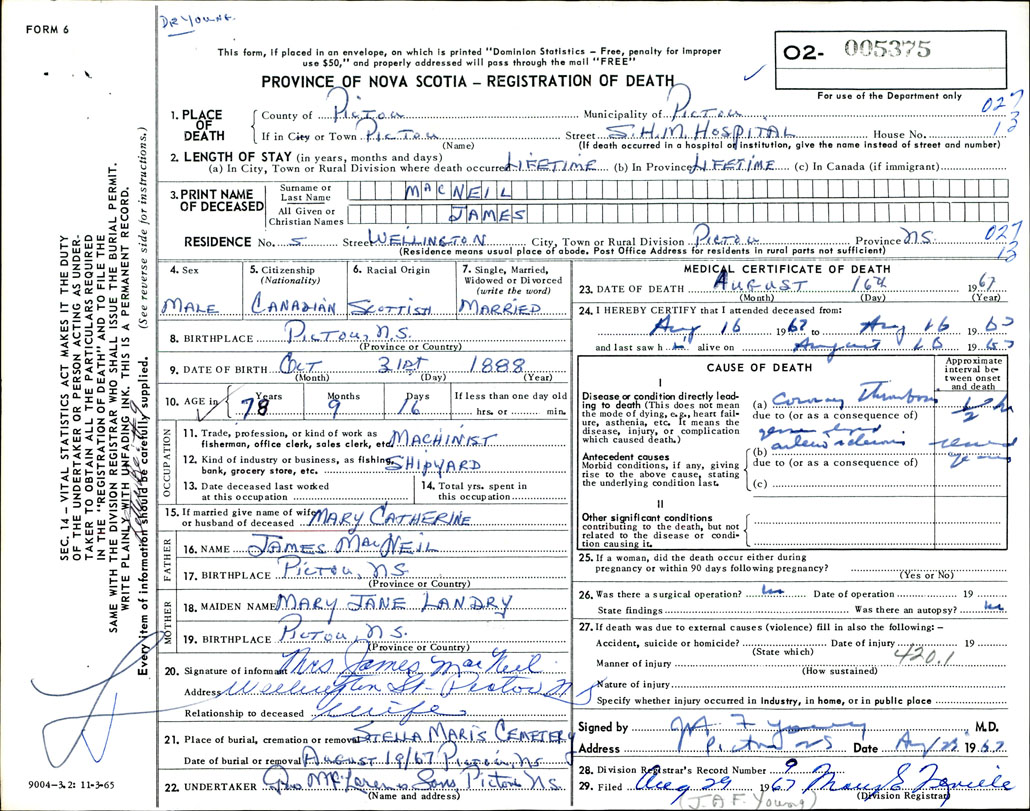 FORM 6
DR YOUNG.
This form, if placed in an envelope, on which is printed "Dominion Statistics – Free, penalty for improper
use $50," and properly addressed will pass through the mail "FREE"
PROVINCE OF NOVA SCOTIA – REGISTRATION OF DEATH
O2- 005375
For use of the Department only
027
13
1. PLACE OF DEATH
County of PICTOU Municipality of PICTOU
If in City or Town PICTOU Street S.H.M. HOSPITAL House No.
(Name) (If death occurred in a hospital or institution, give the name instead of street and number)
2. LENGTH OF STAY (in years, months and days)
(a) In City, Town or Rural Division where death occurred LIFETIME (b) In Province LIFETIME (c) In Canada (if immigrant)
3. PRINT NAME OF DECEASED
Surname or Last Name MACNEIL
All Given or Christian Names JAMES
RESIDENCE No. 5 Street WELLINGTON City, Town or Rural Division PICTOU Province NS
(Residence means usual place of abode. Post Office Address for residents in rural parts not sufficient)
027
13
4. Sex MALE
5. Citizenship (Nationality) CANADIAN
6. Racial Origin SCOTTISH
7. Single, Married, Widowed or Divorced (write the word) MARRIED
8. BIRTHPLACE PICTOU, N.S.
(Province or Country)
9. DATE OF BIRTH OCT 31ST 1888
(Month) (Day) (Year)
10. AGE in Years 78 Months 9 Days 16 If less than one day old
hrs. or min.
OCCUPATION
11. Trade, profession, or kind of work as
fisherman, office clerk, sales clerk, etc. MACHINIST
12. Kind of industry or business, as fishing,
bank, grocery store, etc. SHIPYARD
13. Date deceased last worked
at this occupation
14. Total yrs. spent in
this occupation
15. If married give name of wife
or husband of deceased MARY CATHERINE
FATHER
16. NAME JAMES MACNEIL
17. BIRTHPLACE PICTOU, NS.
(Province or Country)
MOTHER
18. MAIDEN NAME MARY JANE LANDRY
19. BIRTHPLACE PICTOU, N.S.
(Province or Country)
20. Signature of informant Mrs James MacNeil
Address Wellington St- Pictou N S
Relationship to deceased wife
21. Place of burial, cremation or removal STELLA MARIS CEMETERY
Date of burial or removal AUGUST 19/67 Pictou, NS
22. UNDERTAKER Sons Pictou NS.
(Name and address)
MEDICAL CERTIFICATE OF DEATH
23. DATE OF DEATH AUGUST 16th 1967
(Month) (Day) (Year)
24. I HEREBY CERTIFY that I attended deceased from:
Aug 16 1967 to Aug 16 1967
and last saw him alive on August 16 1967
CAUSE OF DEATH
Approximate interval between onset and death
I
Disease or condition directly leading to death (This does not
mean the mode of dying, e.g., heart failure, asthenia, etc. It means the
disease, injury, or complication which caused death.)
(a) Coronary Thrombosis 1/2 hr
due to (or as a consequence of)
generalized
arteriosclerosis
(b) several
years
due to (or as a consequence of)
Antecedent causes
Morbid conditions, if any, giving
rise to the above cause, stating
the underlying condition last.
(c)
II
Other significant conditions
contributing to the death, but not
related to the disease or condition causing it.
25. If a woman, did the death occur either during
pregnancy or within 90 days following pregnancy?
(Yes or No)
26. Was there a surgical operation? no Date of operation 19
State findings Was there an autopsy? no
27. If death was due to external causes (violence) fill in also the following: –
Accident, suicide or homicide? Date of injury 19
(State which)
420.1
Manner of injury
(How sustained)
Nature of injury
Specify whether injury occurred in industry, in home, or in public place
Signed by J A F Young M.D.
Address Pictou NS Date Aug 1967
28. Division Registrar's Record Number 9
29. Filed Aug 29 1967
(Division Registrar)
(J. A F. Young)
SEC. 14 – VITAL STATISTICS ACT MAKES IT THE DUTY
OF THE UNDERTAKER OR PERSON ACTING AS UNDER-
TAKER TO OBTAIN ALL THE PARTICULARS REQUIRED
IN THE "REGISTRATION OF DEATH" AND TO FILE THE
SAME WITH THE DIVISION REGISTRAR WHO SHALL ISSUE THE BURIAL PERMIT.
WRITE PLAINLY WITH UNFADING INK. THIS IS A PERMANENT RECORD.
Every item of information should be carefully supplied. (See reverse side for instructions.)
9004–3.2: 11-3-65